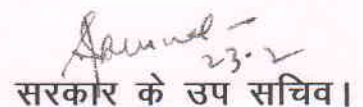 23-2
सरकार के उप सचिव।